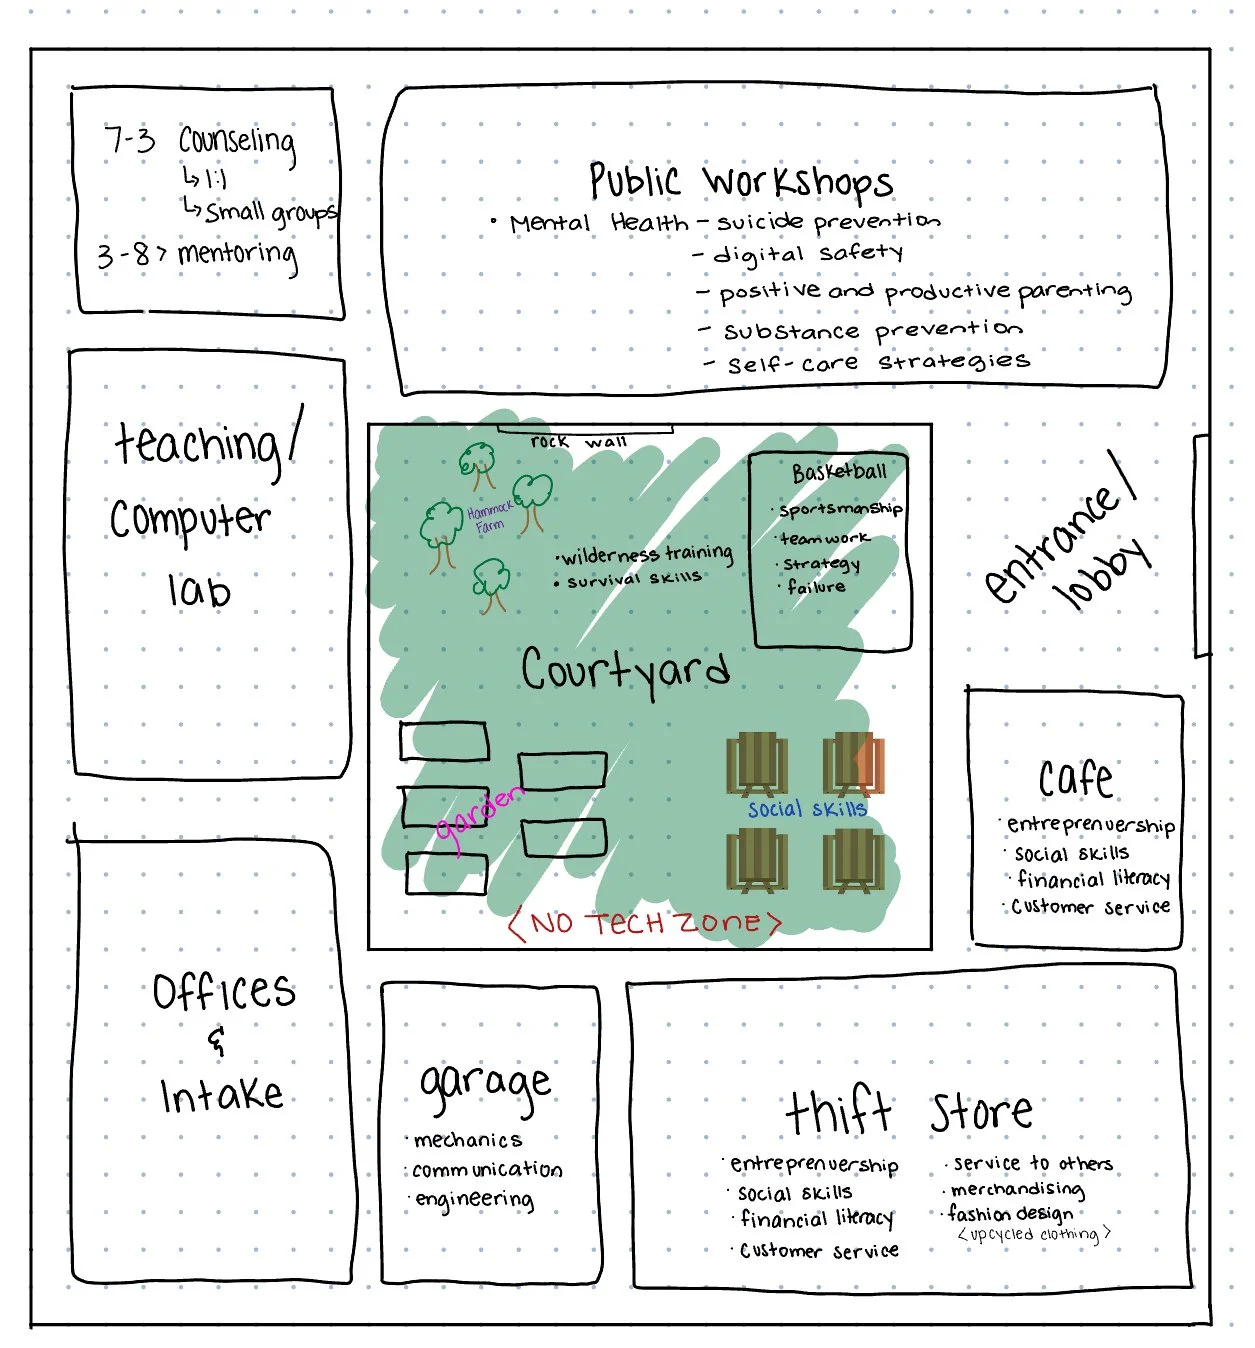 7-3 Counseling
↳ 1:1
↳ Small groups
3-8 > mentoring
Public Workshops
• Mental Health - suicide prevention
- digital safety
- positive and productive parenting
- substance prevention
- self-care strategies
teaching/
Computer
lab
rock wall
Hammock
Farm
• wilderness training
• survival skills
Basketball
· sportsmanship
· teamwork
· strategy
· failure
Courtyard
garden
social skills
<NO TECH ZONE>
entrance/
lobby
cafe
· entreprenuership
· social skills
· financial literacy
· customer service
Offices
&
Intake
garage
· mechanics
· communication
· engineering
thift store
· entreprenuership
· social skills
· financial literacy
· customer service
· service to others
· merchandising
· fashion design
<upcycled clothing>